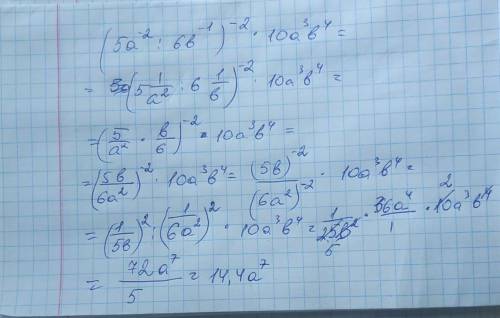 (5a⁻² : 6b⁻¹)⁻² · 10a³b⁴ =
= (5 1/a² : 6 1/b)⁻² · 10a³b⁴ =
= (5/a² · b/6)⁻² · 10a³b⁴ =
= (5b/6a²)⁻² · 10a³b⁴ = (5b)⁻²/(6a²)⁻² · 10a³b⁴ =
= (1/5b)² : (1/6a²)² · 10a³b⁴ = 1/25b² · 36a⁴/1 · 10a³b⁴ 2
5
= 72a⁷/5 = 14,4a⁷